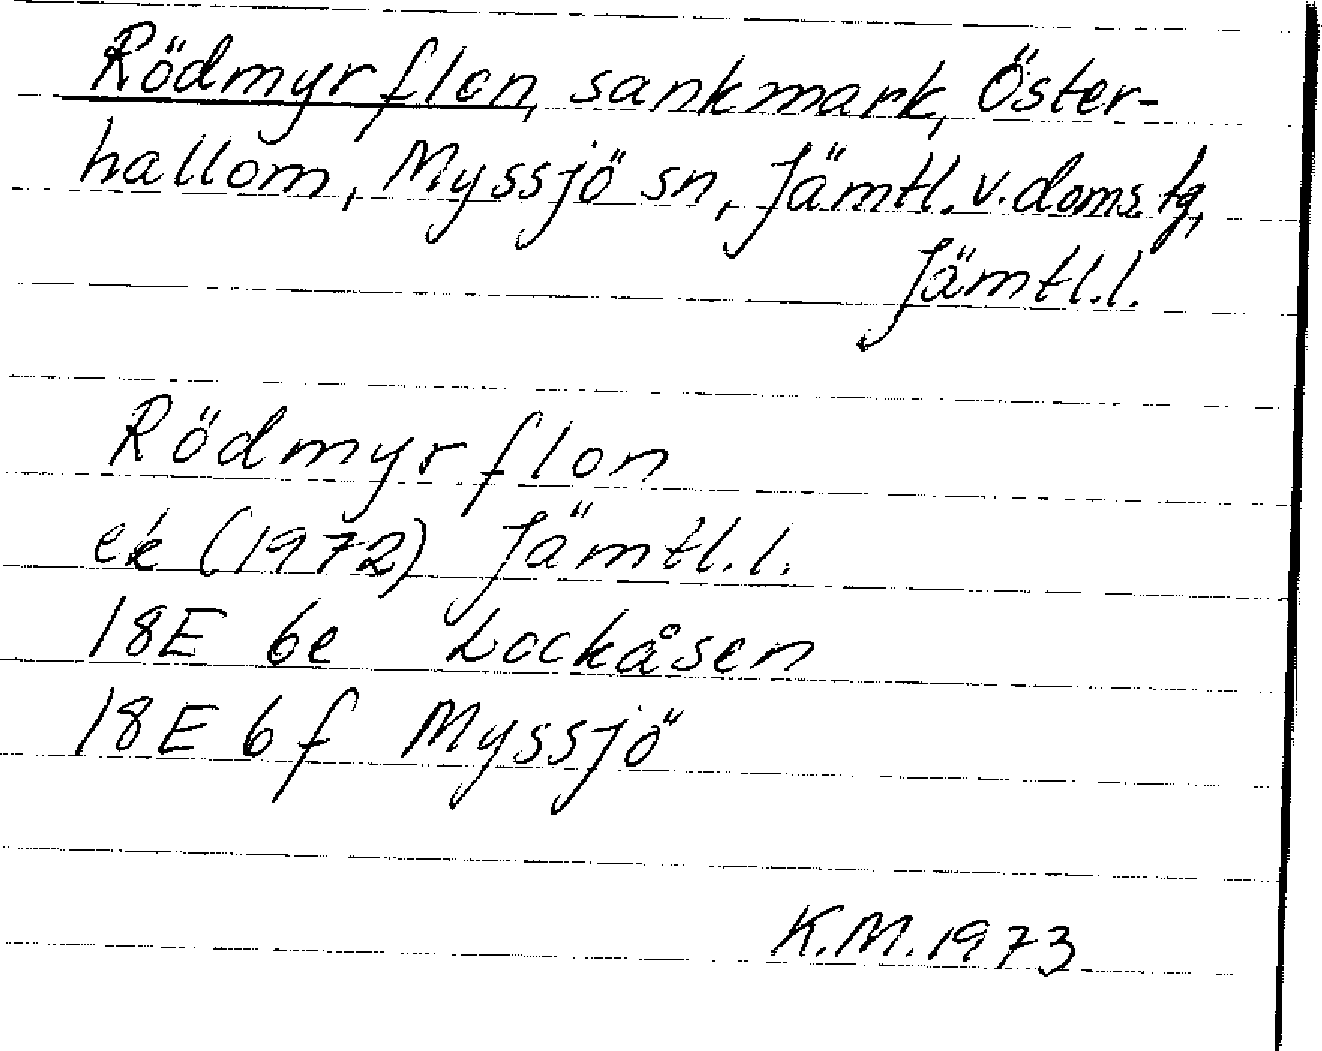 Rödmyrflon, sankmark, Öster-
hallom, Myssjö sn, Jämtl. v. doms. tg,
Jämtl. l.
Rödmyrflon
ek (1972) Jämtl. l.
18E 6e Lockåsen
18E 6f Myssjö
K.M. 1973